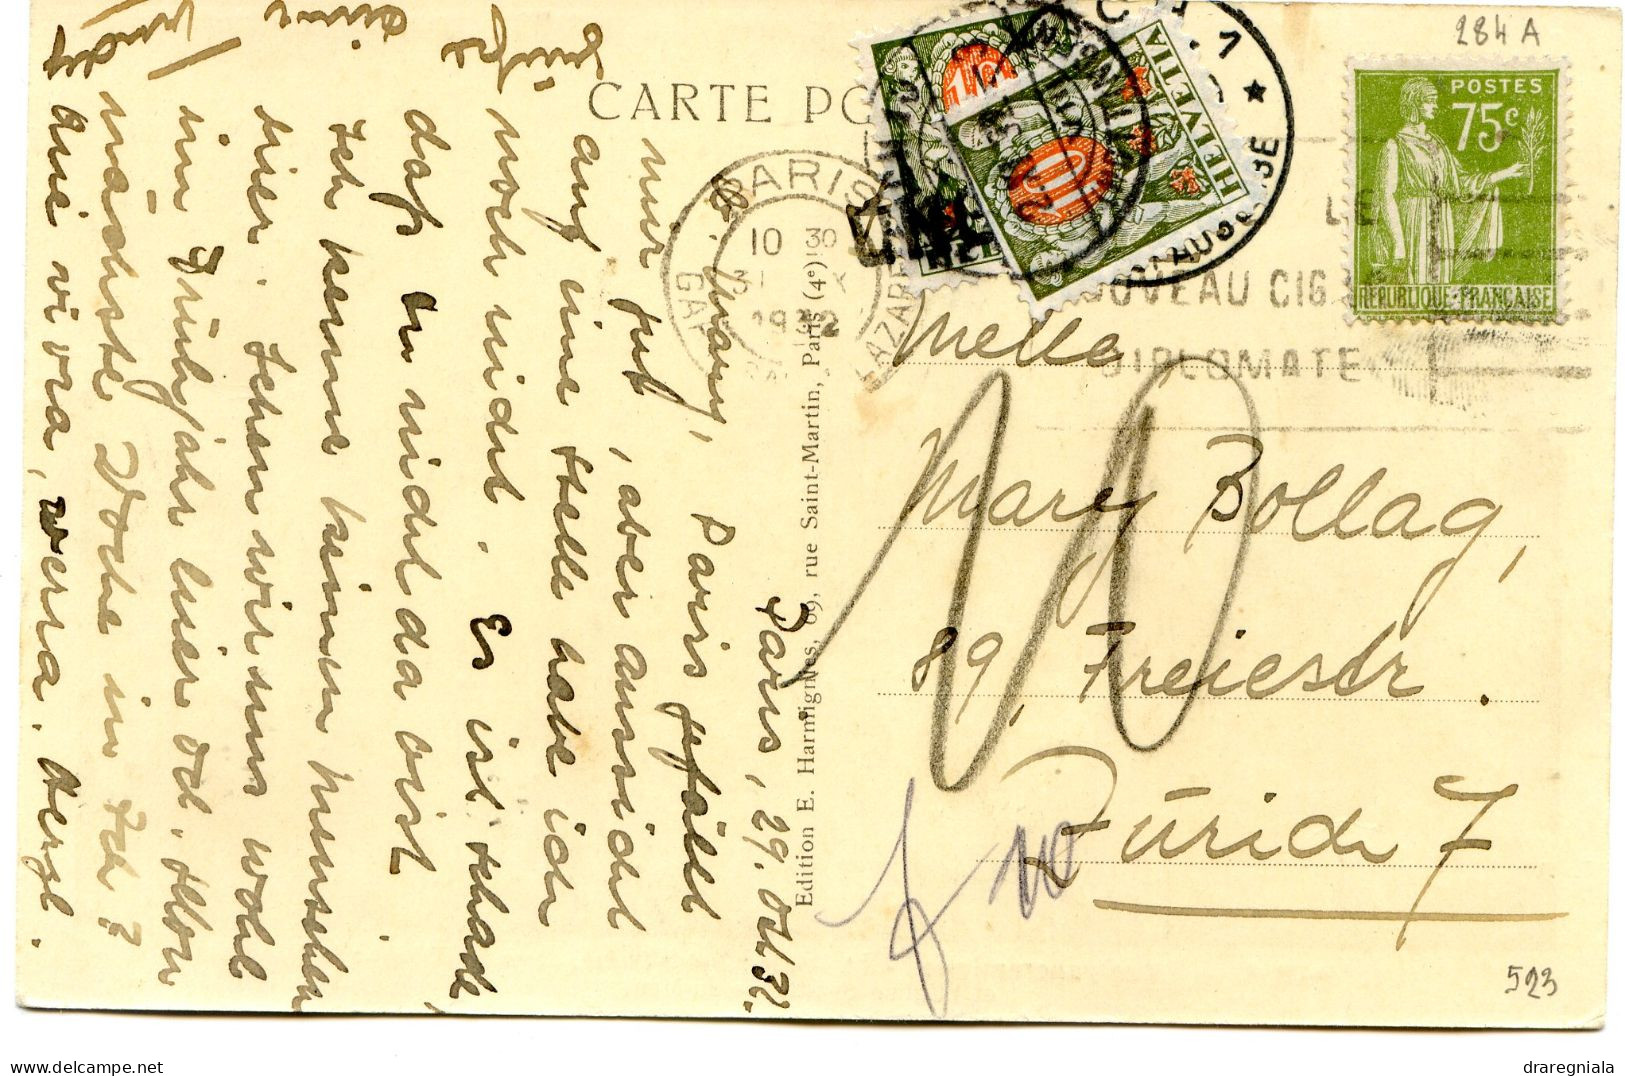 284 A
CARTE PO
POSTES
75c
REPUBLIQUE FRANÇAISE
HELVETIA
10
PARIS
10 30
31 X
1932
GARE
LAZARE
LE
NOUVEAU CIG
DIPLOMATE
Melle
Mary Bollag,
89, Freiestr.
Zürich 7
10
523
Edition E. Harmignies, 69, rue Saint-Martin, Paris (4e)
Paris, 29. Okt 32.
Paris gefällt
mir gut, aber aussicht
auf eine Stelle habe ich
noch nicht. Es ist schade,
daß du nicht da bist
Ich kenne keinen Menschen
hier. Sehen wir uns wohl
im Frühjahr hier od. schon
nächste Woche in Zch?
Qui vivra, verra. Herzl.